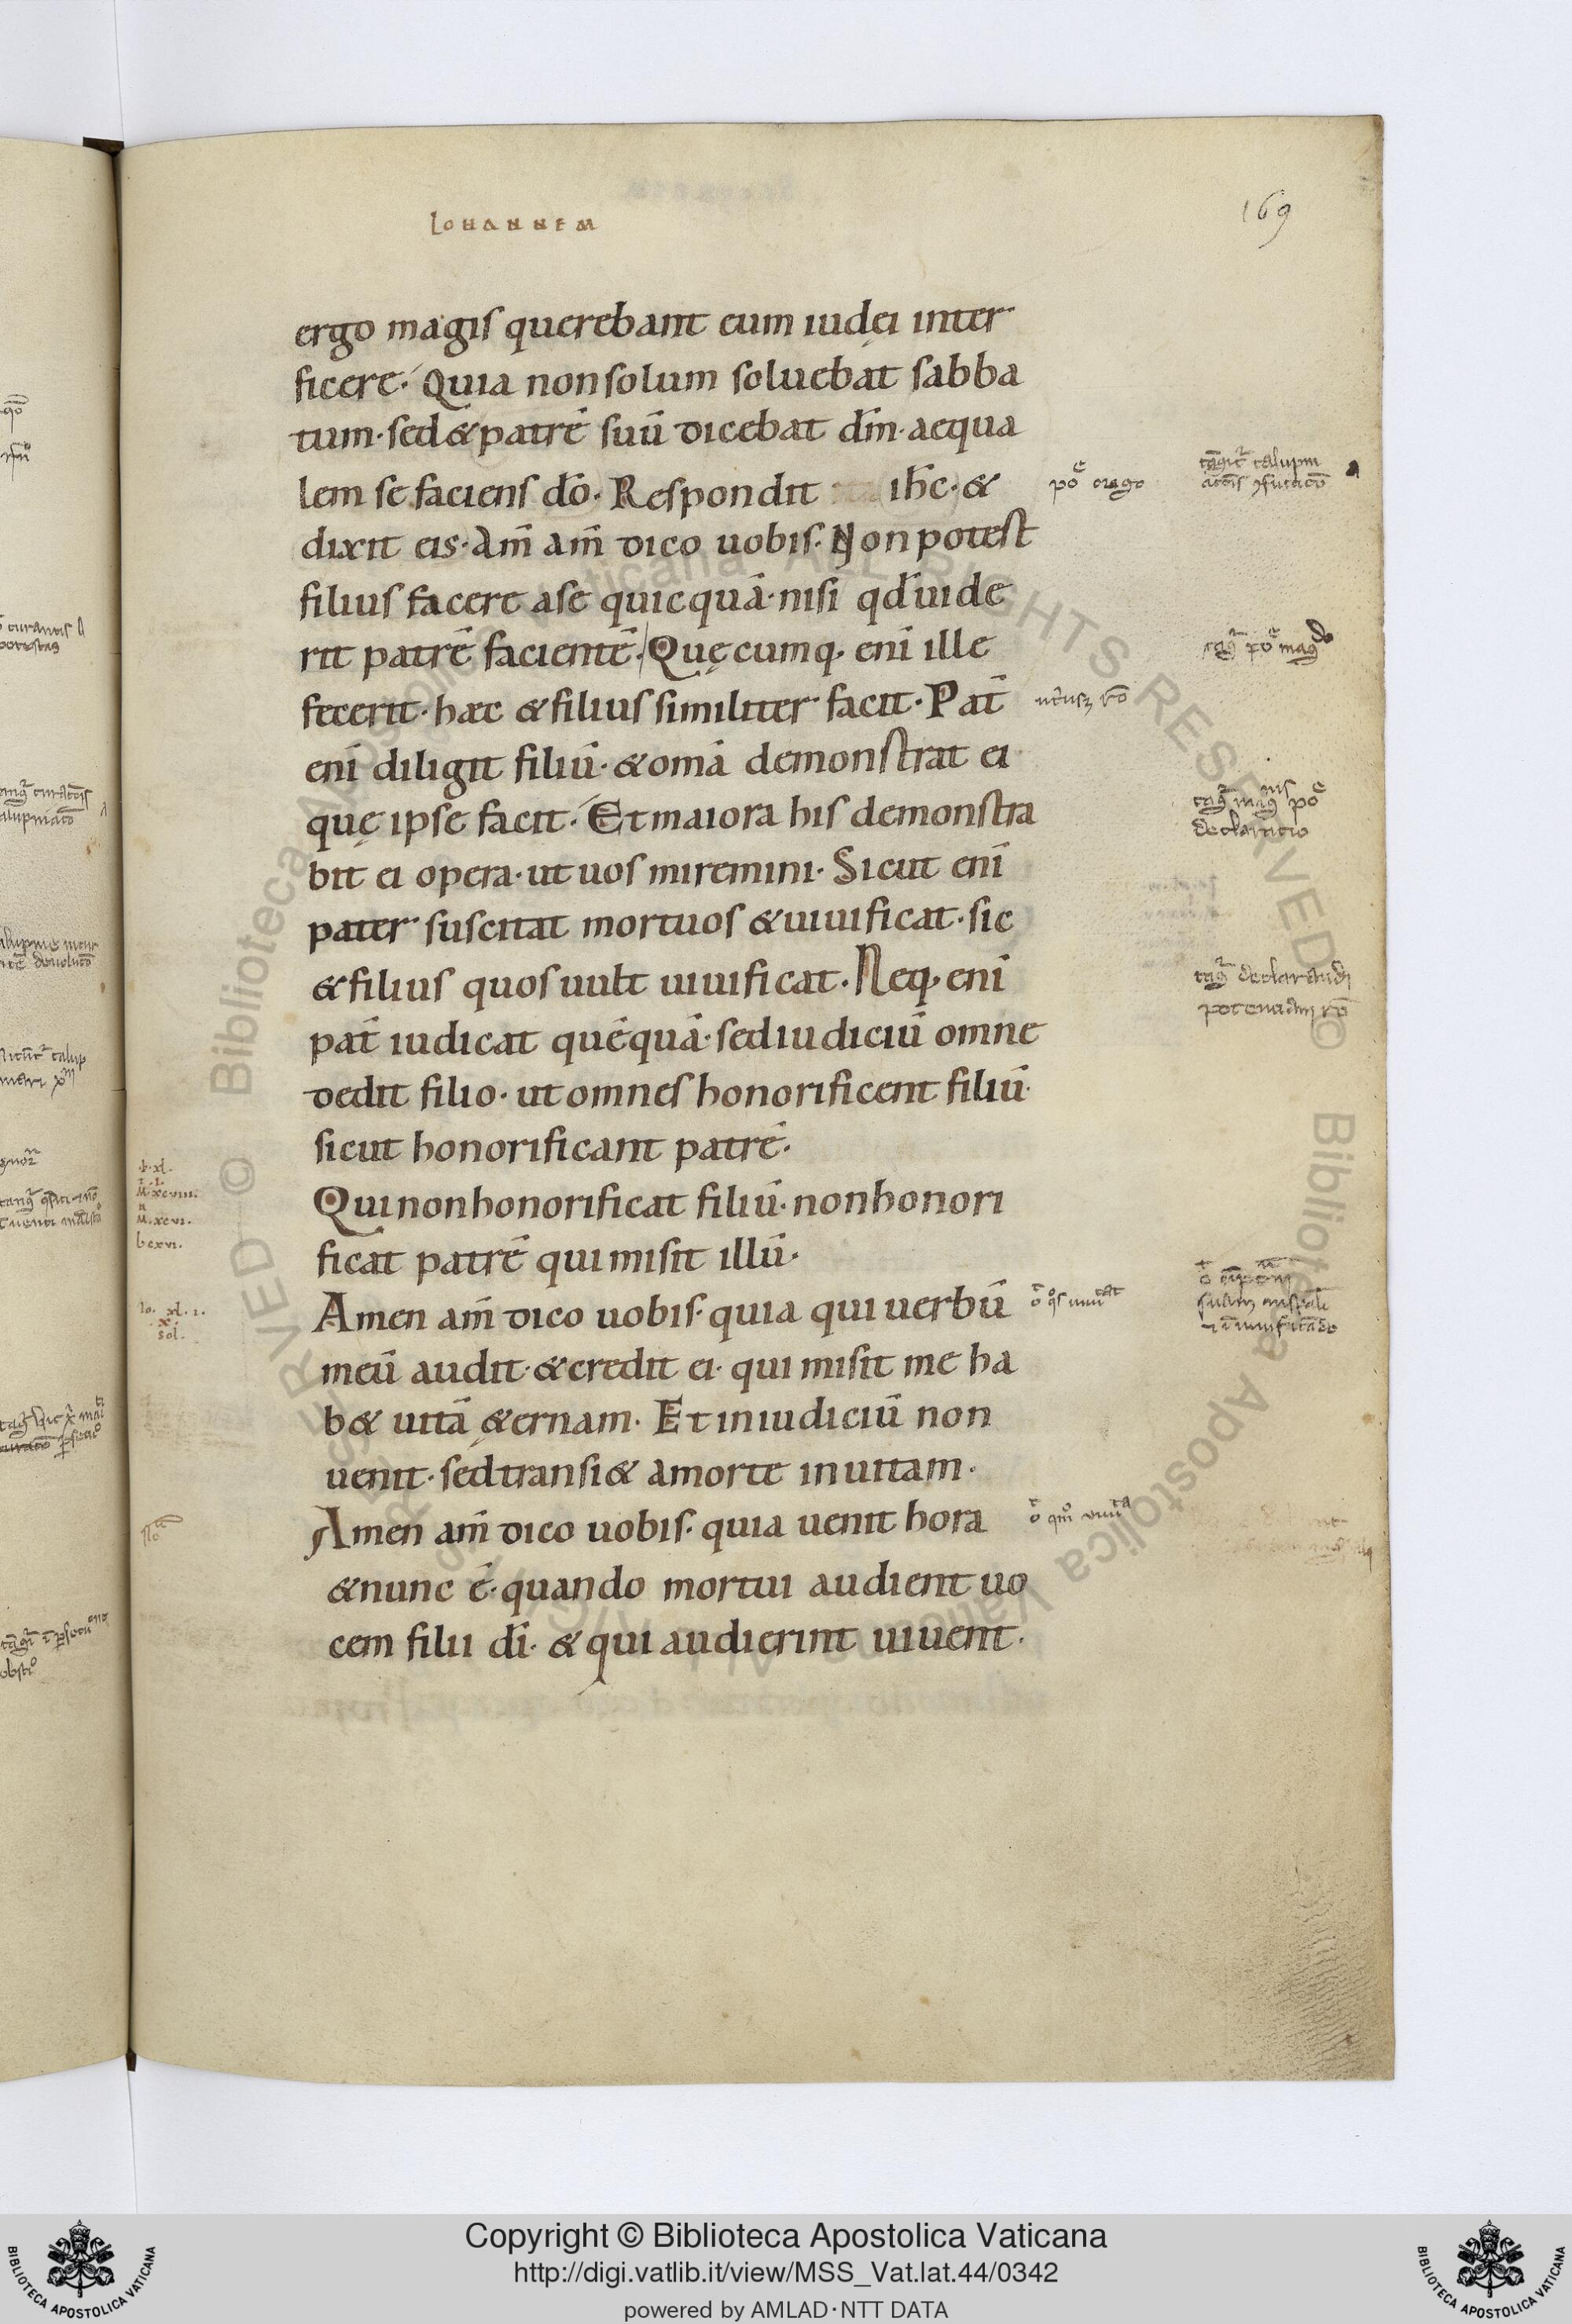 IOHANNEM
169
ergo magis querebant eum iudęi inter
ficere. Quia non solum soluebat sabba
tum· sed & patrē suū dicebat dm̄· aequa
lem se faciens dō. Respondit ih̄c· &
dixit eis· Am̄ am̄ dico uobis. Non potest
filius facere a se quicquā· nisi qd̄ uide
rit patrē facientē. Quęcumq· enī ille
fecerit· haec & filius similiter facit. Pat̄
enī diligit filiū· & om̄a demonstrat ei
quę ipse facit. Et maiora his demonstra
bit ei opera· ut uos miremini. Sicut enī
pater suscitat mortuos & uiuificat· sic
& filius quos uult uiuificat. Neq· enī
pat̄ iudicat quēquā· sed iudiciū omne
dedit filio· ut omnes honorificent filiū·
sicut honorificant patrē.
Qui non honorificat filiū· non honori
ficat patrē qui misit illū.
Amen am̄ dico uobis· quia qui uerbū
meū audit· & credit ei· qui misit me ha
b& uitā ę&ernam. Et in iudiciū non
uenit· sed transi& a morte in uitam.
Amen am̄ dico uobis· quia uenit hora
& nunc ē· quando mortui audient uo
cem filii dī· & qui audierint uiuent.
Copyright © Biblioteca Apostolica Vaticana
http://digi.vatlib.it/view/MSS_Vat.lat.44/0342
powered by AMLAD·NTT DATA
BIBLIOTECA APOSTOLICA VATICANA
BIBLIOTECA APOSTOLICA VATICANA